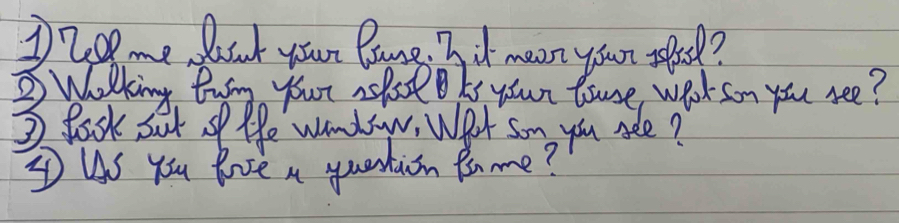 1) Tell me about your house. Is it near your school?
2) Walking from your school to your house, what can you see?
3) Look out of the window. What can you see?
4) Do you have a question for me?